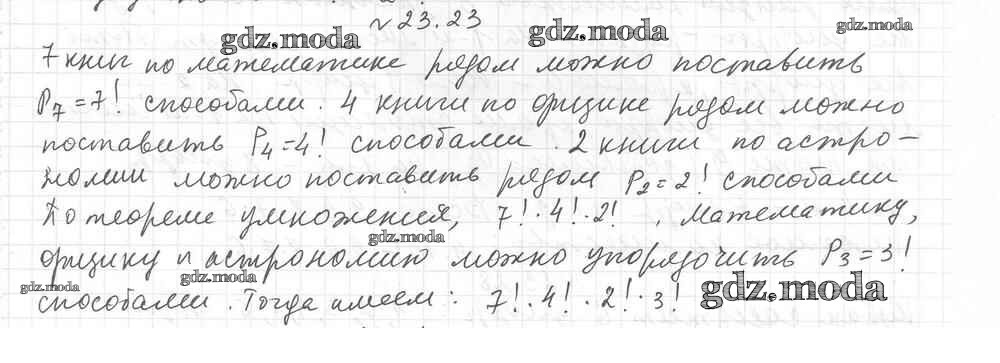 № 23.23
7 книг по математике рядом можно поставить
P₇=7! способами. 4 книги по физике рядом можно
поставить P₄=4! способами. 2 книги по астро-
номии можно поставить рядом P₂=2! способами
По теореме умножения, 7!·4!·2!, Математику,
физику и астрономию можно упорядочить P₃=3!
способами. Тогда имеем: 7!·4!·2!·3!
gdz.moda
gdz.moda
gdz.moda
gdz.moda
gdz.moda
gdz.moda
gdz.moda